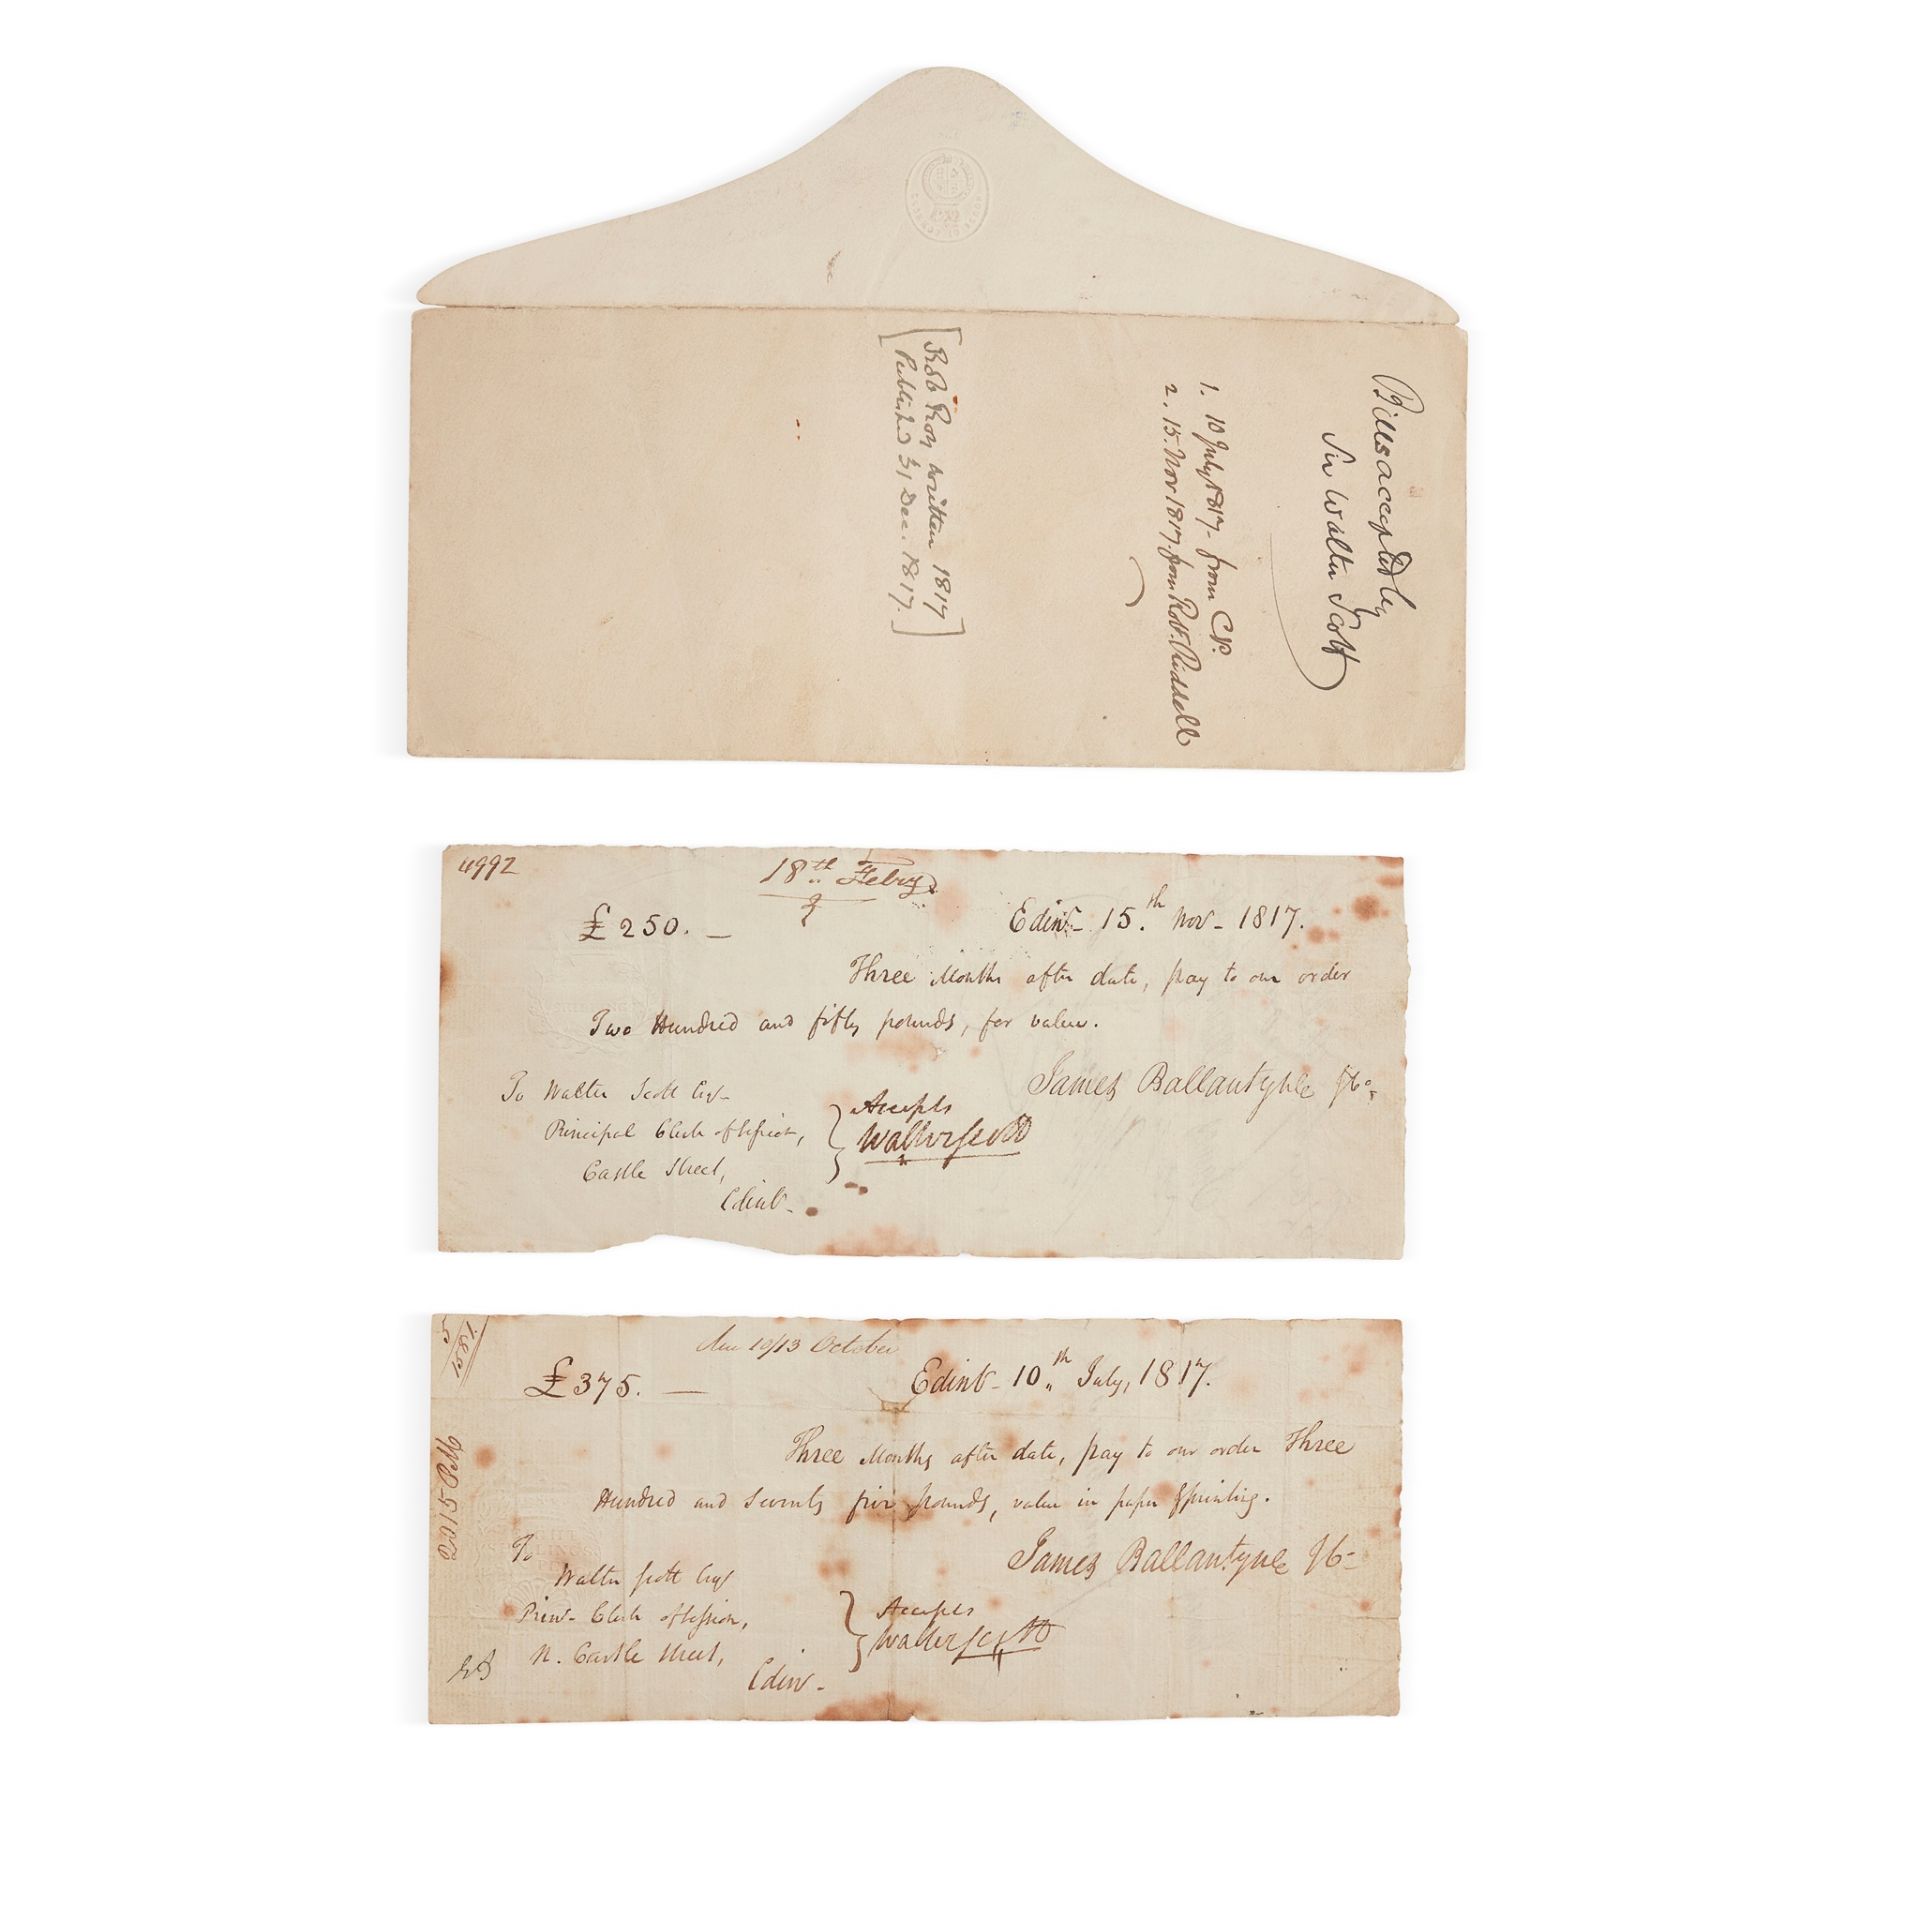 HOUSE OF COMMONS
Bills accepted by
Sir Walter Scott
1. 10 July 1817 - from
2. 15. Nov 1817. from Robt. Riddell
[Rob Roy written 1817
Published 31 Dec. 1817.]
4992
18th Febry
£250. —
Edinr. 15.th Nov - 1817.
Three Months after date, pay to our order
Two Hundred and fifty pounds, for value.
James Ballantyne & Co.
To Walter Scott Esqr
Principal Clerk of Session,
Castle Street,
Edinr.
Accepts
Walter Scott
5
1581
due 10/13 October
£375. —
Edinr. 10th July, 1817.
Three Months after date, pay to our order Three
Hundred and Seventy five pounds, value in paper & printing.
James Ballantyne & Co
To
Walter Scott Esqr
Prinl. Clerk of Session,
N. Castle Street,
Edinr.
Accepts
Walter Scott
2015
SHILLINGS